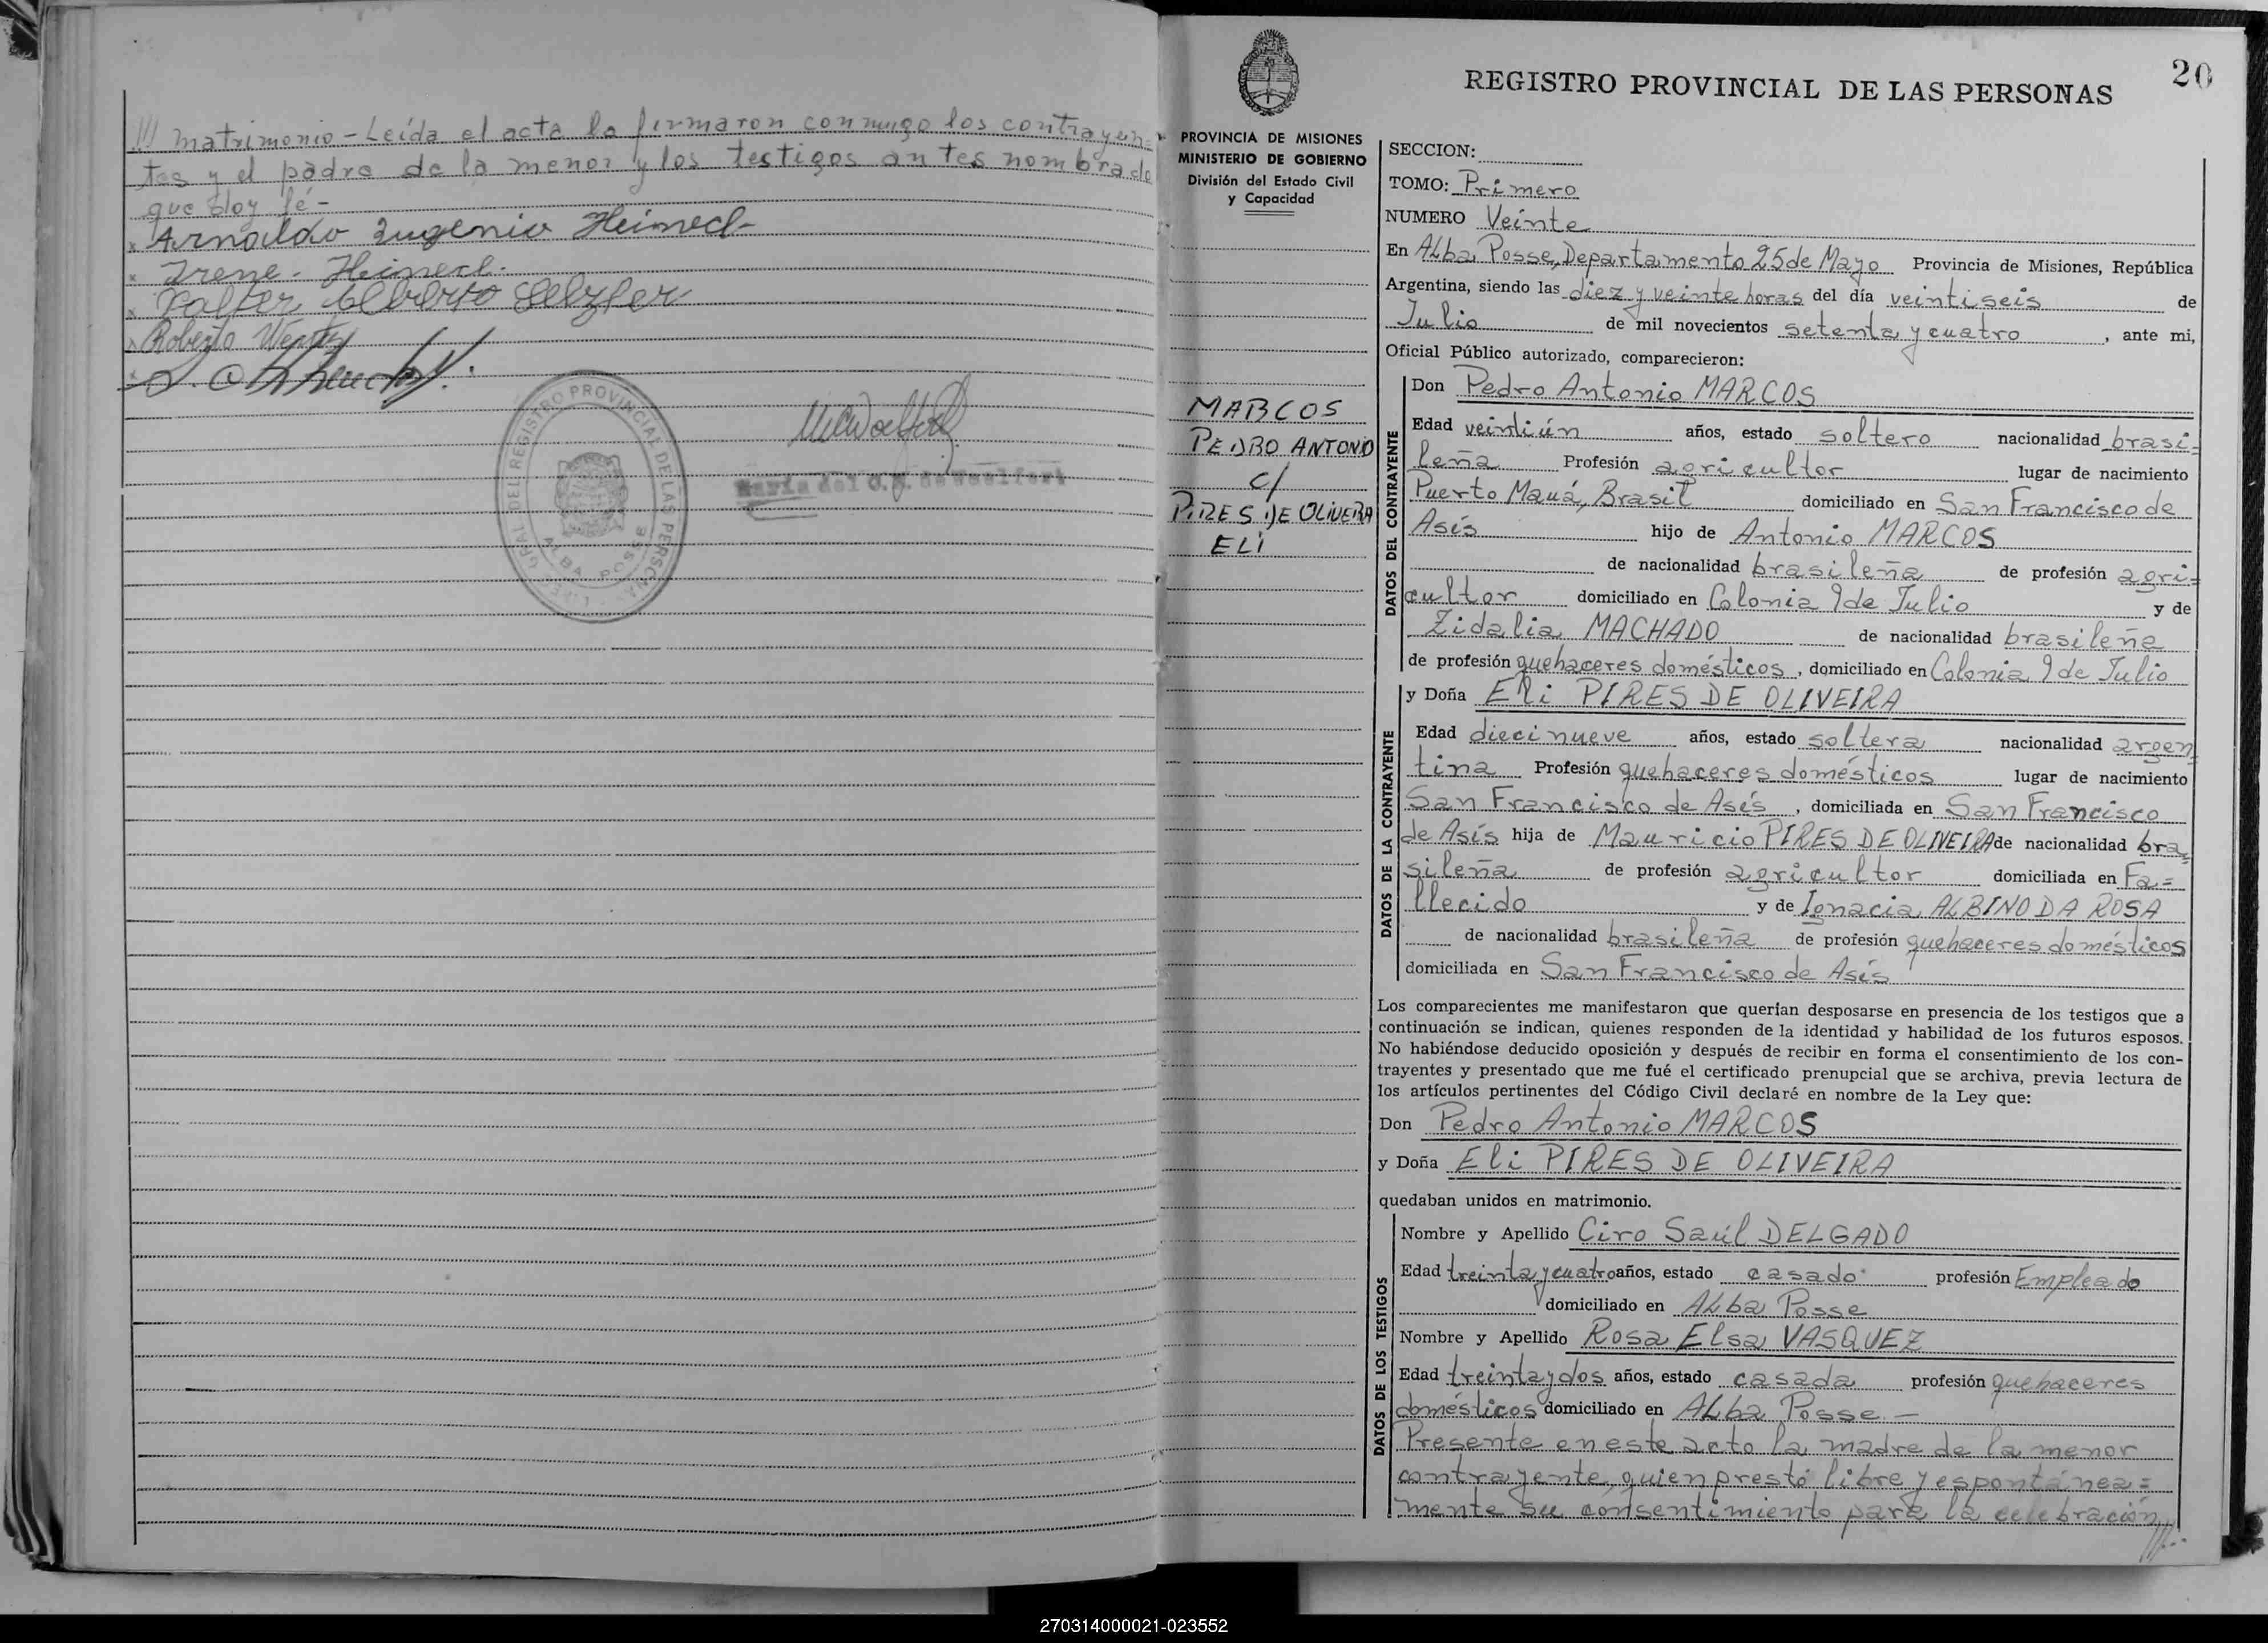 /// matrimonio - Leída el acta la firmaron conmigo los contrayen=
tes y el padre de la menor y los testigos antes nombrado
que doy fé -
x Arnoldo Eugenio Heineck
x Irene - Heineck.
x Valter Alberto
x Roberto
REGISTRO PROVINCIAL DE LAS PERSONAS
ALBA POSSE
20
REGISTRO PROVINCIAL DE LAS PERSONAS
PROVINCIA DE MISIONES
MINISTERIO DE GOBIERNO
División del Estado Civil
y Capacidad
MARCOS
PEDRO ANTONIO
c/
PIRES DE OLIVEIRA
ELI
SECCION:
TOMO: Primero
NUMERO Veinte
En ALba Posse, Departamento 25 de Mayo Provincia de Misiones, República
Argentina, siendo las diez y veinte horas del día veintiseis de
Julio de mil novecientos setenta y cuatro, ante mi,
Oficial Público autorizado, comparecieron:
DATOS DEL CONTRAYENTE
Don Pedro Antonio MARCOS
Edad veintiún años, estado soltero nacionalidad brasi=
leña Profesión agricultor lugar de nacimiento
Puerto Mauá, Brasil domiciliado en San Francisco de
Asís hijo de Antonio MARCOS
de nacionalidad brasileña de profesión agri=
cultor domiciliado en Colonia 9 de Julio y de
Zidalia MACHADO de nacionalidad brasileña
de profesión quehaceres domésticos, domiciliado en Colonia 9 de Julio
DATOS DE LA CONTRAYENTE
y Doña Eli PIRES DE OLIVEIRA
Edad diecinueve años, estado soltera nacionalidad argen=
tina Profesión quehaceres domésticos lugar de nacimiento
San Francisco de Asís, domiciliada en San Francisco
de Asís hija de Mauricio PIRES DE OLIVEIRA de nacionalidad bra=
sileña de profesión agricultor domiciliada en Fa=
llecido y de Ignacia ALBINO DA ROSA
de nacionalidad brasileña de profesión quehaceres domésticos
domiciliada en San Francisco de Asís
Los comparecientes me manifestaron que querían desposarse en presencia de los testigos que a
continuación se indican, quienes responden de la identidad y habilidad de los futuros esposos.
No habiéndose deducido oposición y después de recibir en forma el consentimiento de los con-
trayentes y presentado que me fué el certificado prenupcial que se archiva, previa lectura de
los artículos pertinentes del Código Civil declaré en nombre de la Ley que:
Don Pedro Antonio MARCOS
y Doña Eli PIRES DE OLIVEIRA
quedaban unidos en matrimonio.
DATOS DE LOS TESTIGOS
Nombre y Apellido Ciro Saúl DELGADO
Edad treinta y cuatro años, estado casado profesión Empleado
domiciliado en ALba Posse
Nombre y Apellido Rosa Elsa VASQUEZ
Edad treinta y dos años, estado casada profesión quehaceres
domésticos domiciliado en ALba Posse -
Presente en este acto la madre de la menor
contrayente, quien prestó libre y espontánea=
mente su consentimiento para la celebración ///..
270314000021-023552